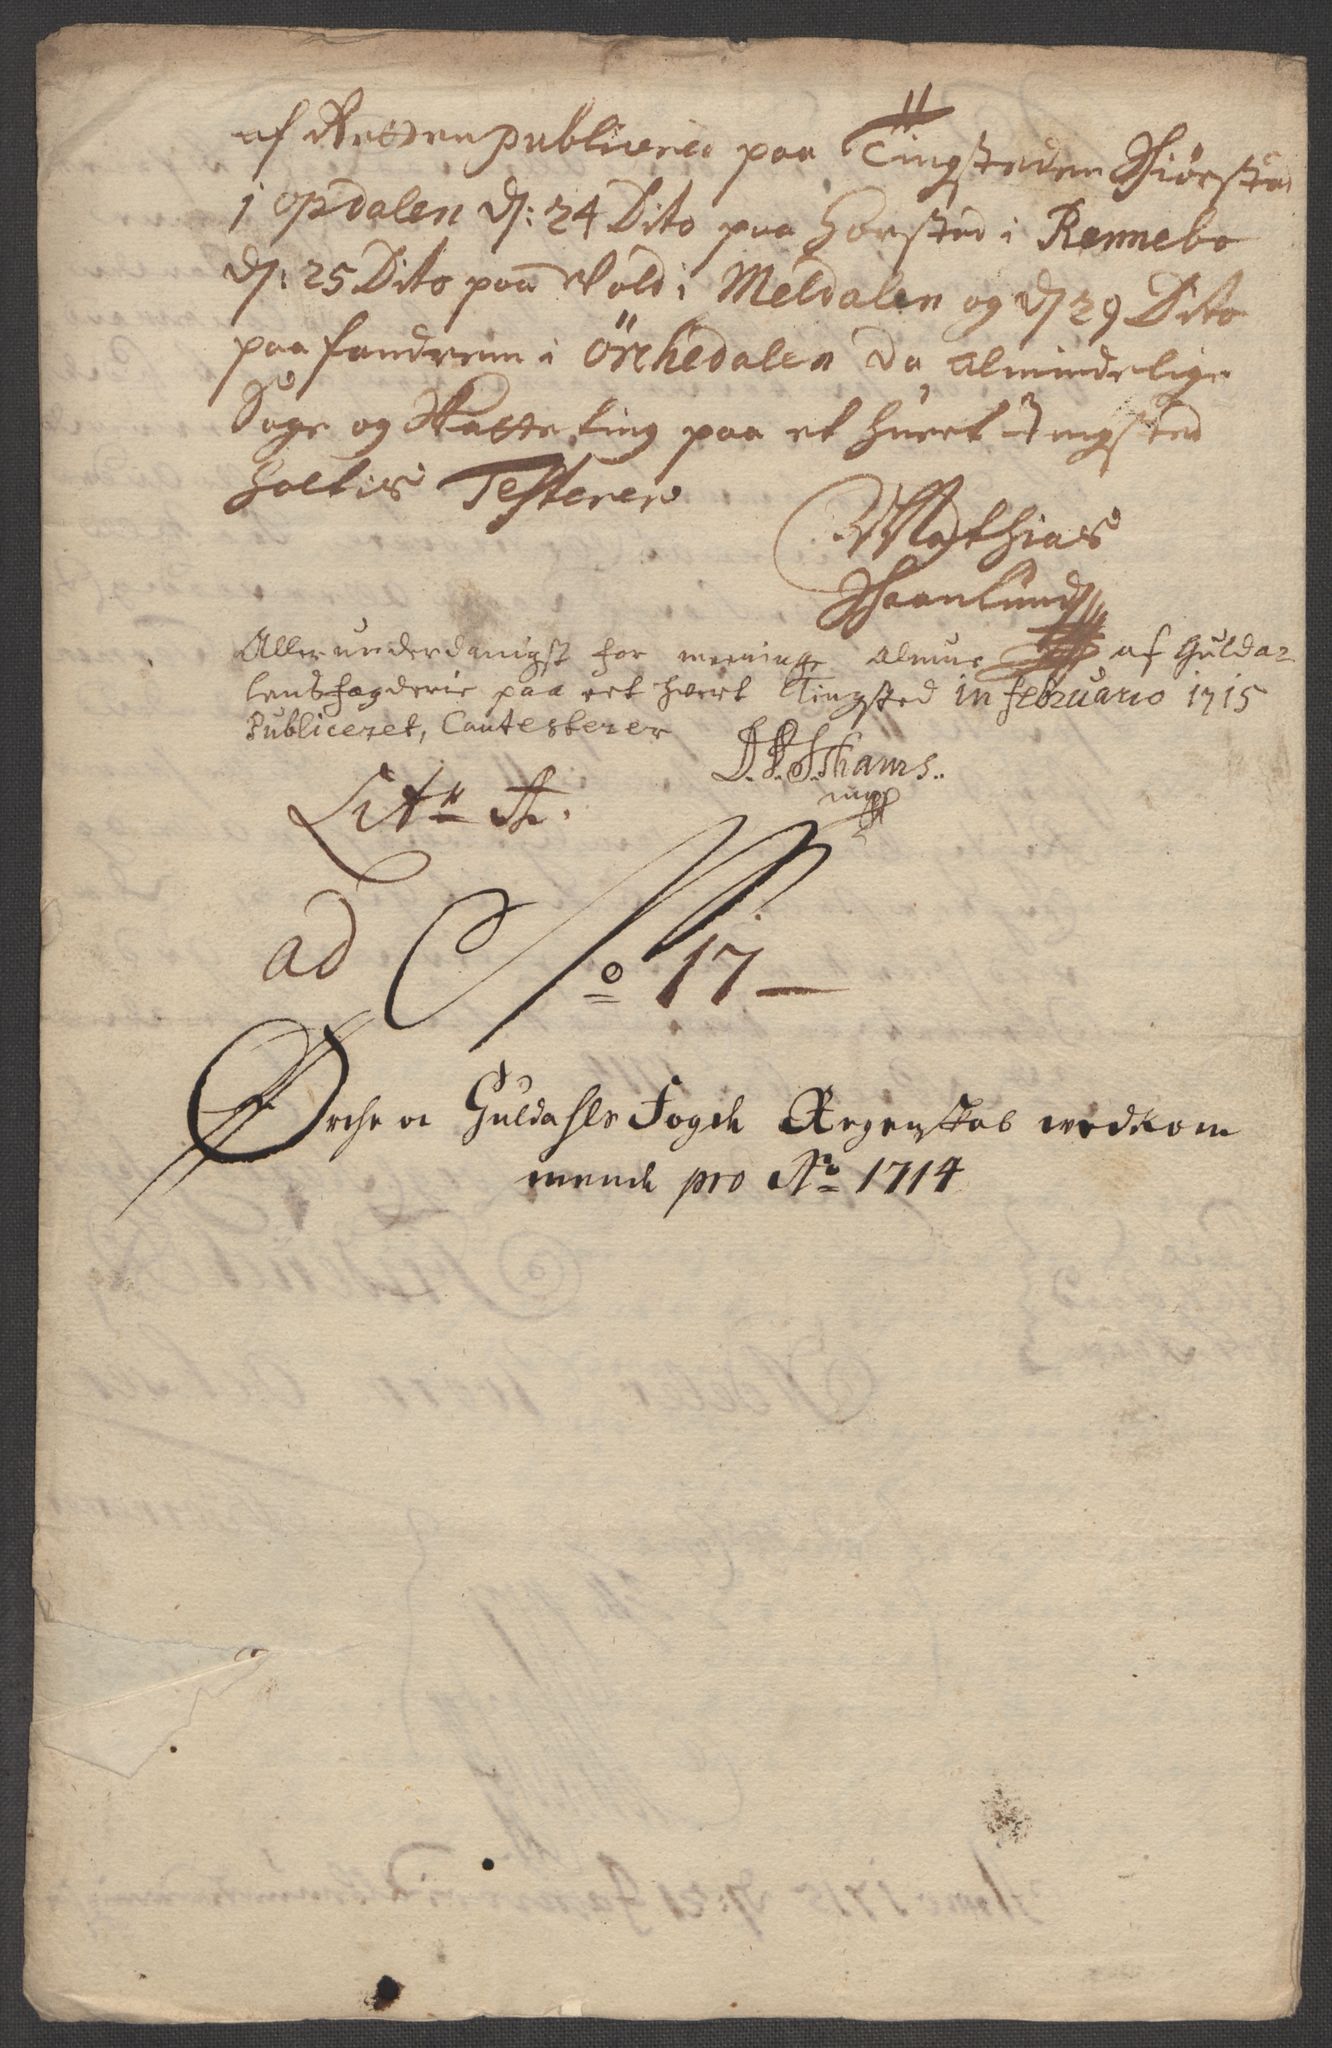 af Retten publicered paa Tingsteden
i Opdalen d: 24 Dito paa Horsted i Rennebo
d: 25 Dito paa Vold i Meldalen og d 29 Dito
paa fandrem i Örchedalen da almindelige
Sage og Skatte ting paa et huert Tingsted
holtis Testerer
Mathias
Allerunderdanigst for meenige almue af Guldaz
lens fogderie paa eet hvert Tingsted in februario 1715
Publiceret, Cantesterer
mpp
Litr A.
ad No 17
Orche oc Guldahls Fogde Regenskab wedkom
mende pro Ao 1714